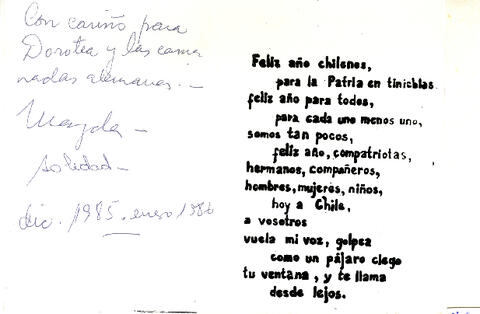 Con cariño para
Dorotea y las cama
radas alemanas. —
Magda —
Soledad —
dic. 1985. enero 1986
Feliz año chilenos,
para la Patria en tinieblas
feliz año para todos,
para cada uno menos uno,
somos tan pocos,
feliz año, compatriotas,
hermanos, compañeros,
hombres, mujeres, niños,
hoy a Chile,
a vosotros
vuela mi voz, golpea
como un pájaro ciego
tu ventana, y te llama
desde lejos.